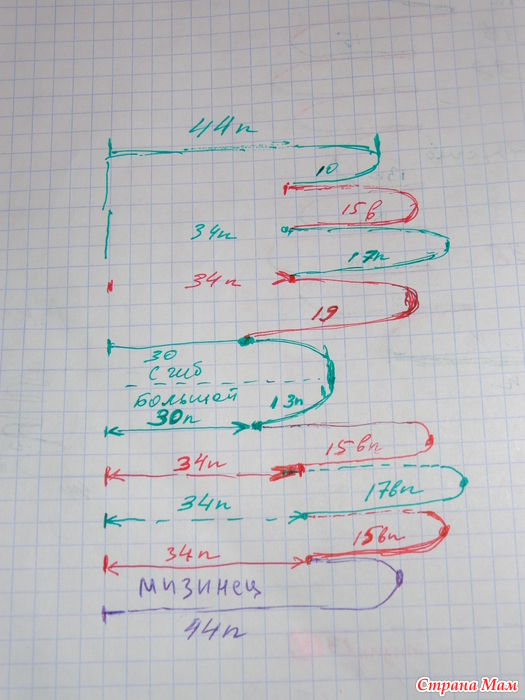 44п
10
15в
34п
17п
34п
19
30
сгиб
большой
30п
13п
15вп
34п
17вп
34п
15вп
34п
мизинец
44п
Страна Мам